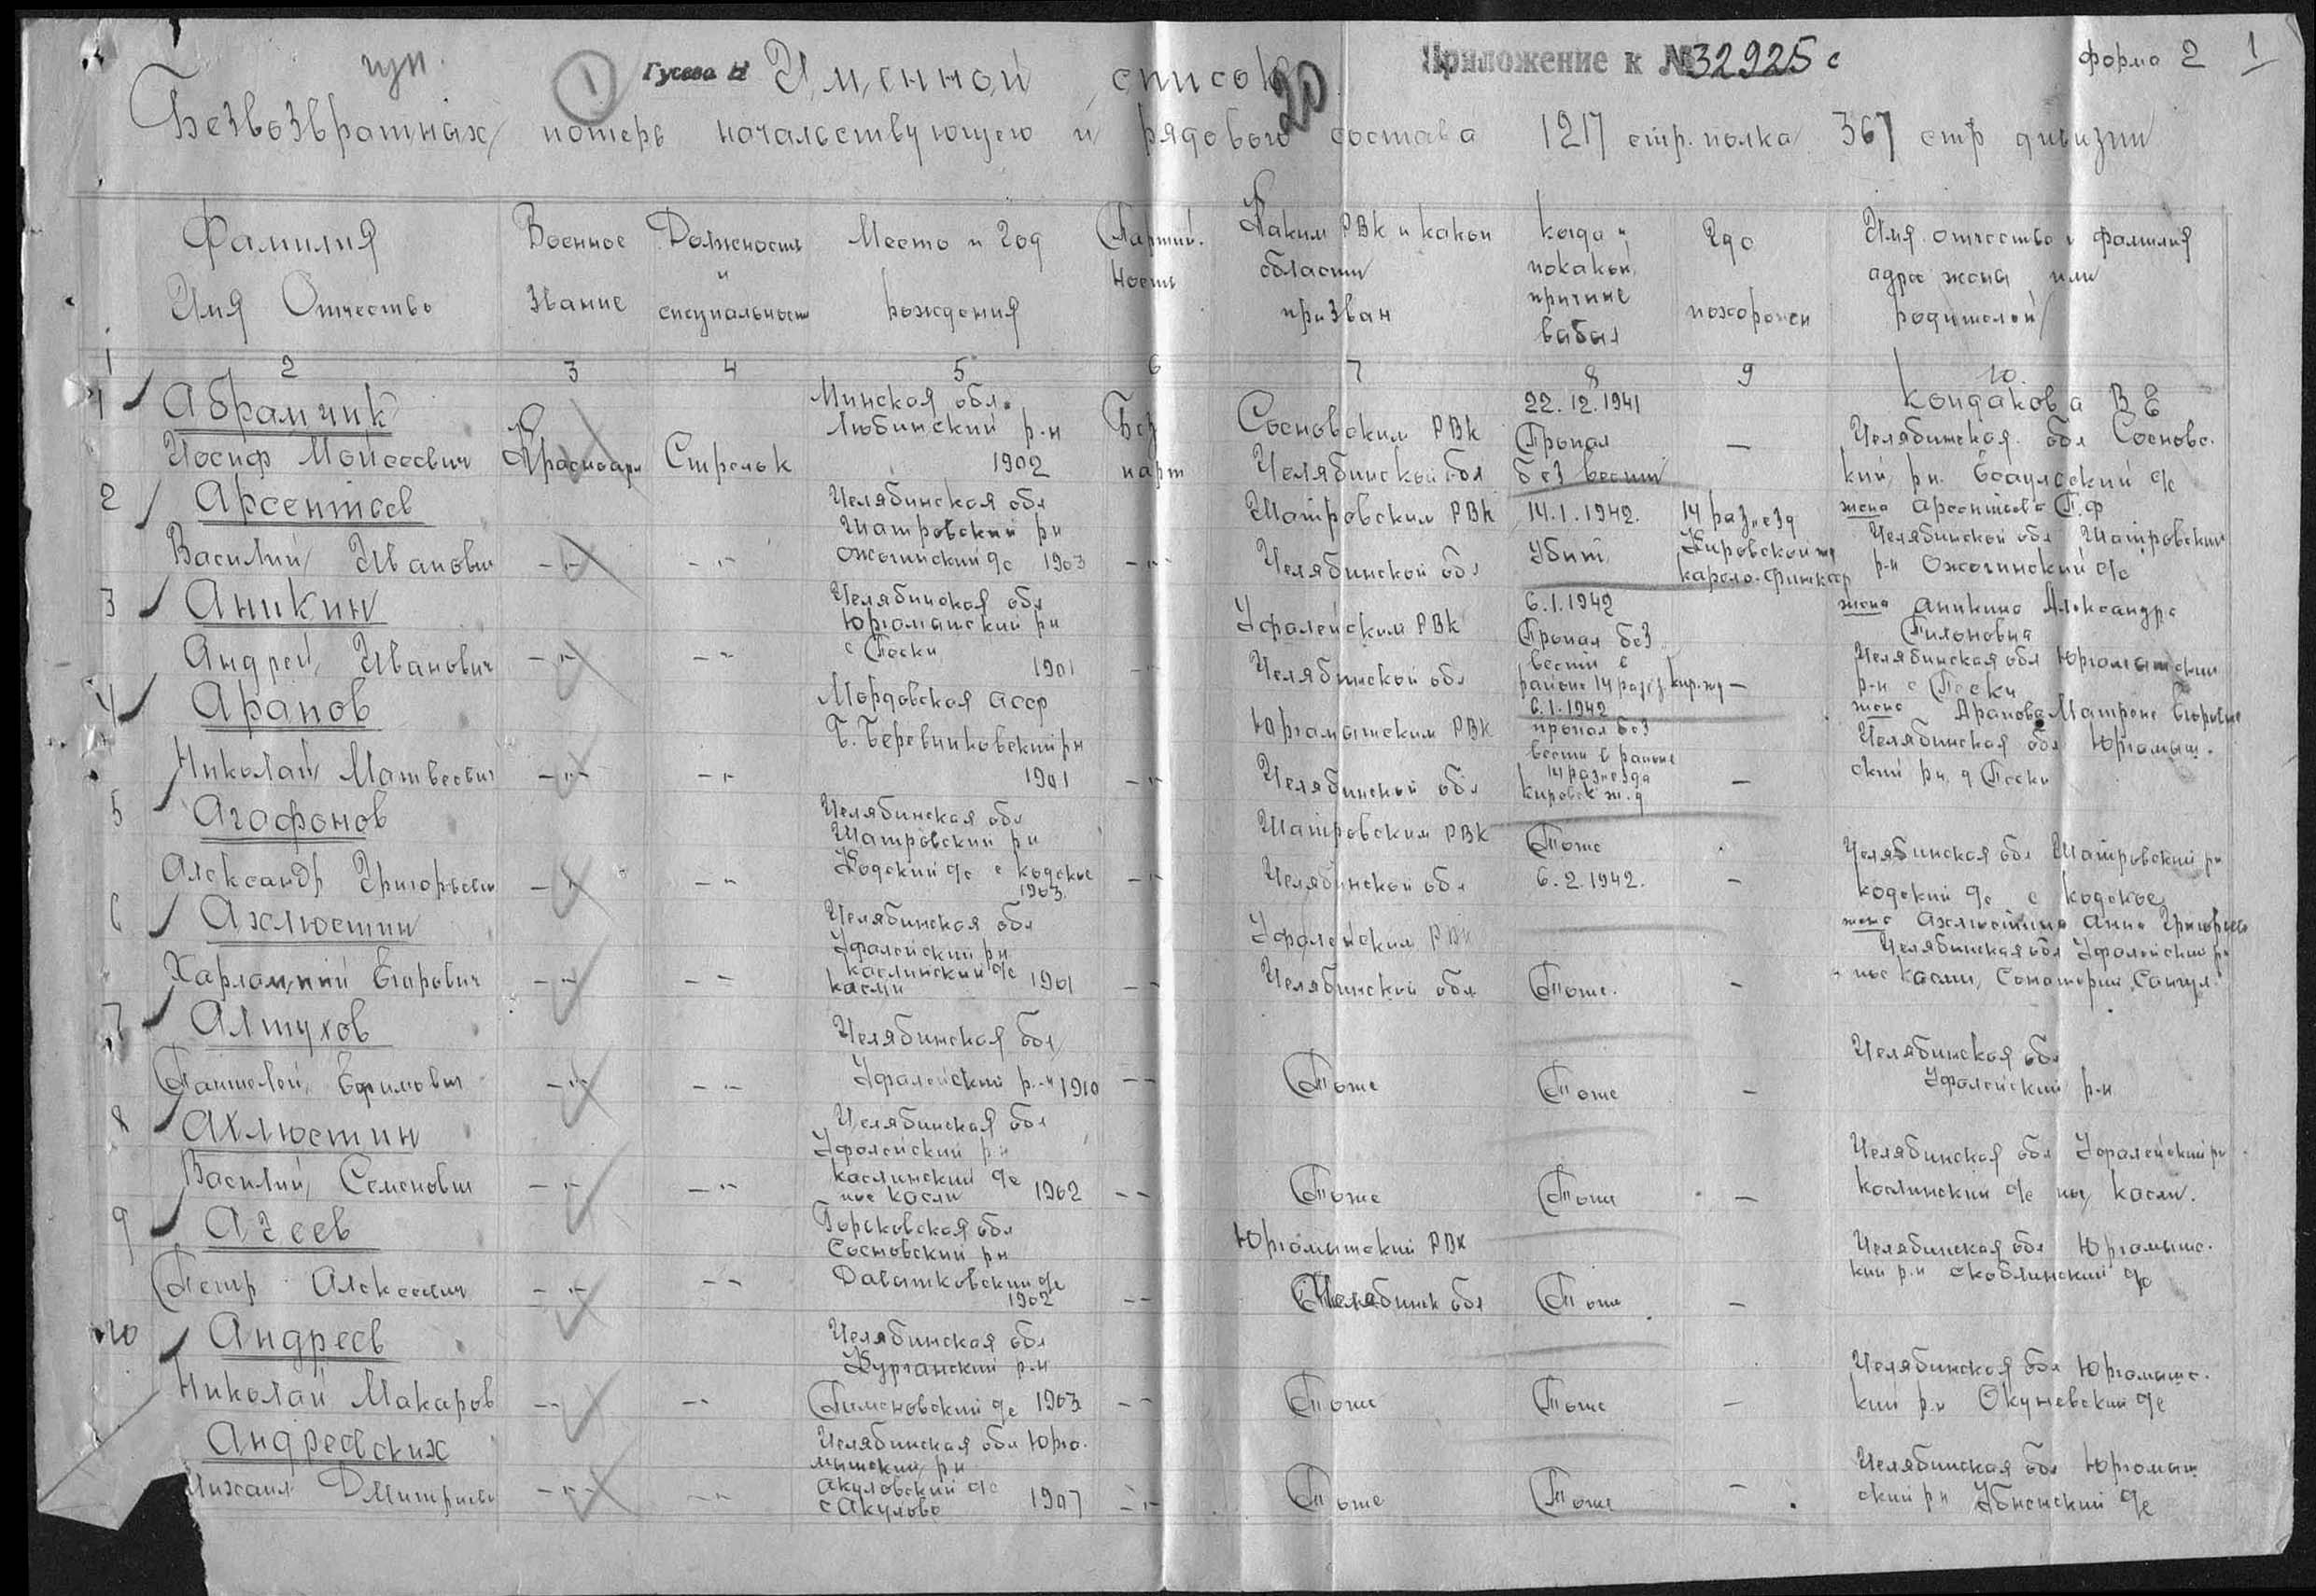 1
Гусева Н
Именной список
20
Приложение к № 32925 с
форма 2
1
Безвозвратных потерь начальствующего и рядового состава 1217 стр. полка 367 стр дивизии
Фамилия Имя Отчество
Военное звание
Должность и специальность
Место и год рождения
Партий. ность
Каким РВК и какой области призван
Когда и по какой причине выбыл
Где похоронен
Имя отчество и фамилия адрес жены или родителей
1 2 3 4 5 6 7 8 9 10
1 Абрамчик
Иосиф Мойсеевич
Красноарм
Стрелок
Минская обл.
Любинский р-н
1902
Без
парт
Сосновским РВК
Челябинской обл
22.12.1941
Пропал
без вести
—
Кондакова В Е
Челябинская обл Сосновс.
кий рн. Есаулский с/с
2 Арсентьев
Василий Иванович
-"-
-"-
Челябинская обл
Шатровский рн
Ожогинский с/с 1903
-"-
Шатровским РВК
Челябинской обл
14.1.1942.
Убит
14 раз"езд
Кировской жд
Карело-Фин ССР
жена Арсентьева П.Ф
Челябинской обл Шатровский
р-н Ожогинский с/с
3 Аникин
Андрей Иванович
-"-
-"-
Челябинская обл
Юргомышский рн
с Пески
1901
-"-
Уфалейским РВК
Челябинской обл
6.1.1942
Пропал без
вести в
районе 14 раз'ез. Кир. жд
—
жена Аникина Александра
Челябинская обл Юргомышский
р-н с Пески
4 Арапов
Николай Матвеевич
-"-
-"-
Мордовская АССР
Б. Березниковский рн
1901
-"-
Юргомышским РВК
Челябинской обл
6.1.1942
пропал без
вести в районе
14 раз'езда
Кировск ж.д
—
жена Арапова Матрена
Челябинская обл Юргомыш.
ский рн. д Пески
5 Агафонов
Александр Григорьевич
-"-
-"-
Челябинская обл
Шатровский рн
Кодский с/с с Кодское
1903.
-"-
Шатровским РВК
Челябинской обл
Тоже
6.2.1942.
—
Челябинская обл Шатровский рн
Кодский с/с с Кодское
6 Ахлюстин
Харлампий Егорович
-"-
-"-
Челябинская обл
Уфалейский рн
Каслинский с/с
Касли 1901
-"-
Уфалейским РВК
Челябинской обл
Тоже.
—
жена Ахлюстина Анна
Челябинская обл Уфалейский рн
пос Касли, Санаторий
7 Алтухов
Пантелей Ефимович
-"-
-"-
Челябинская обл
Уфалейский р-н 1910
-"-
Тоже
Тоже
—
Челябинская обл
Уфалейский р-н
8 Ахлюстин
Василий Семенович
-"-
-"-
Челябинская обл
Уфалейский рн
Каслинский с/с
пос Касли 1902
-"-
Тоже
Тоже
—
Челябинская обл Уфалейский рн
Каслинский с/с пос Касли.
9 Агеев
Петр Алексеевич
-"-
-"-
Горьковская обл
Сосновский рн
Давятковский с/с
1902
-"-
Юргомышский РВК
Челябинск обл
Тоже
—
Челябинская обл Юргомышс.
кий р.н Скоблинский с/с
10 Андреев
Николай Макаров
-"-
-"-
Челябинская обл
Курганский р-н
Пименовский с/с 1903
-"-
Тоже
Тоже
—
Челябинская обл Юргомышс.
кий р.н Окуневский с/с
Андреевских
Михаил Дмитриев
-"-
-"-
Челябинская обл Юрго.
мышский рн
Акуловский с/с
с Акулово 1907
-"-
Тоже
Тоже
—
Челябинская обл Юргомыш
ский рн с/с